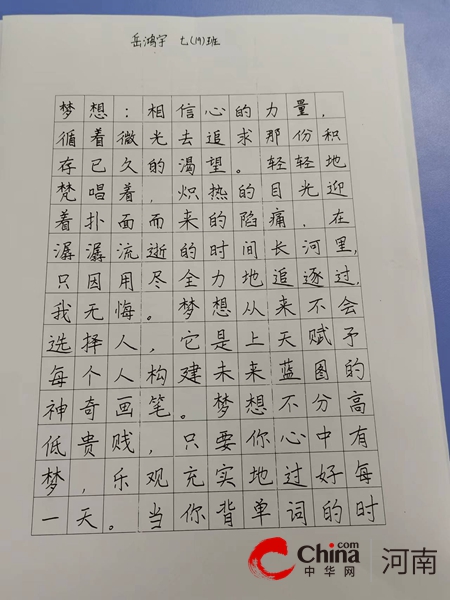 岳鸿宇 七(19)班
梦想：相信心的力量，
循着微光去追求那份积
存已久的渴望。轻轻地
梵唱着，炽热的目光迎
着扑面而来的陷痛，在
潺潺流逝的时间长河里，
只因用尽全力地追逐过，
我无悔。梦想从来不会
选择人，它是上天赋予
每个人构建未来蓝图的
神奇画笔。梦想不分高
低贵贱，只要你心中有
梦，乐观充实地过好每
一天。当你背单词的时
China.com
中华网
河南